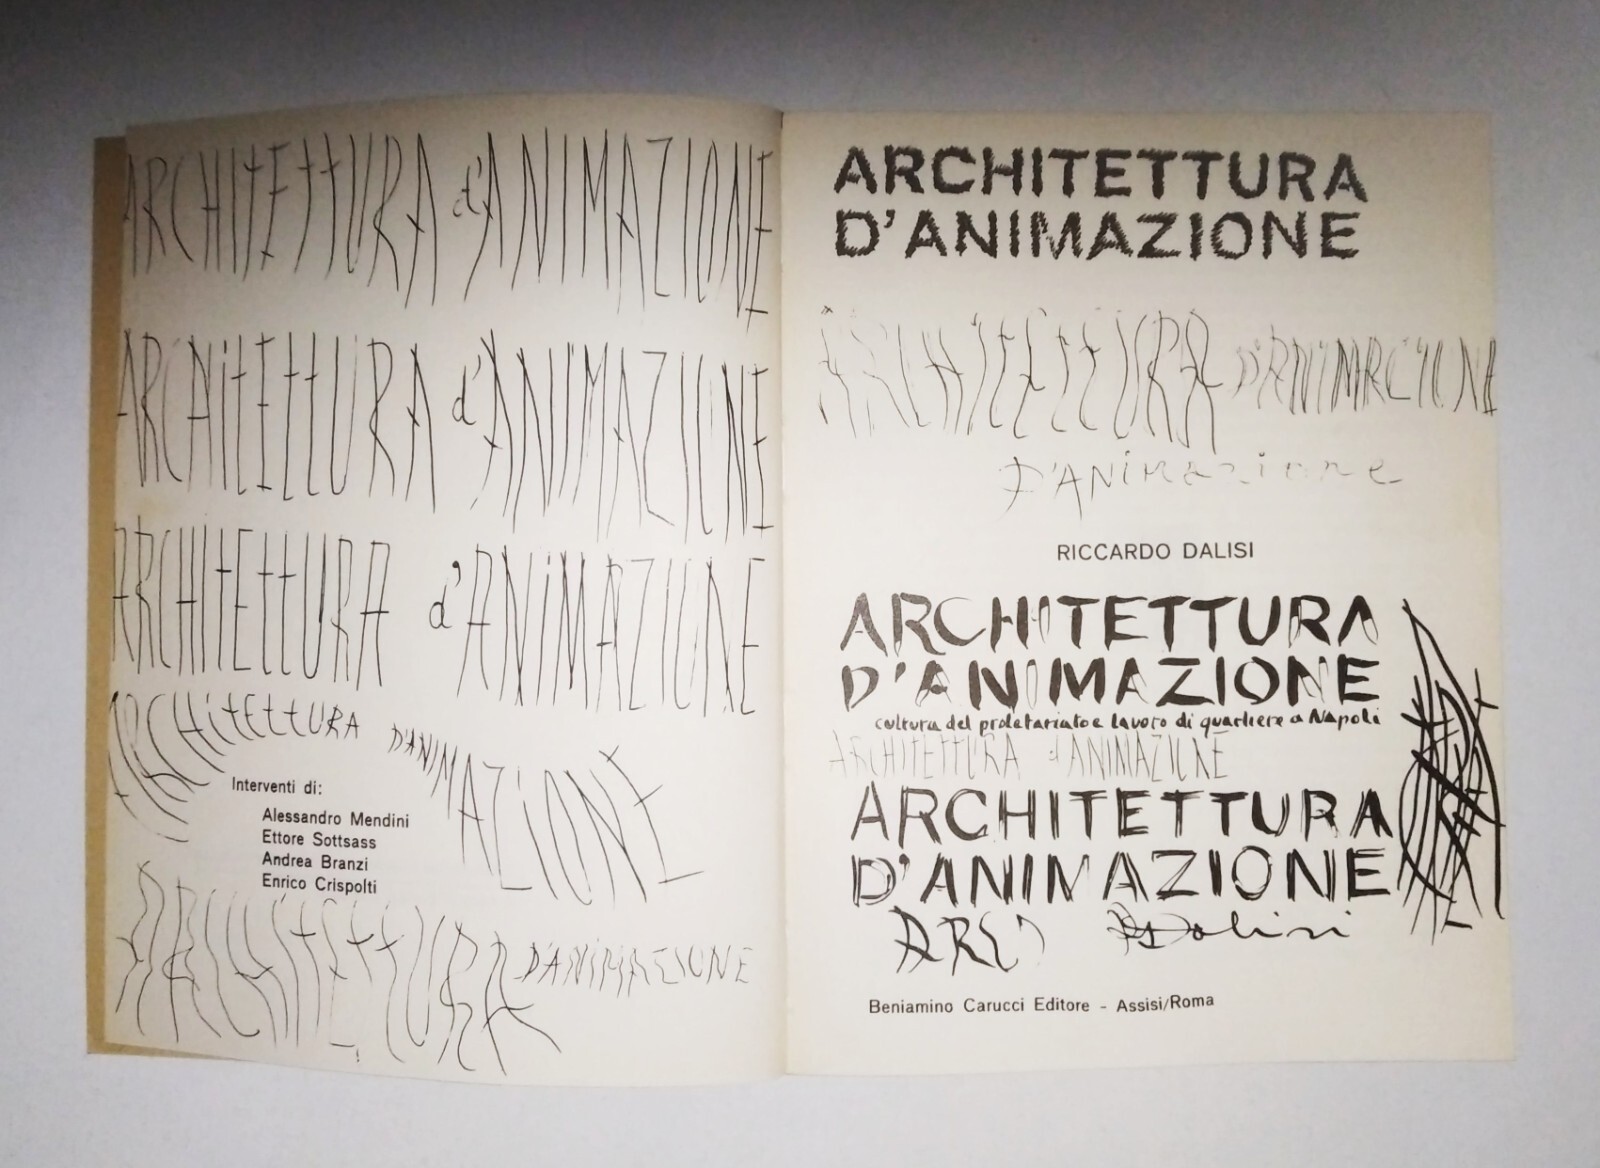 ARCHITETTURA d'ANIMAZIONE
ARCHITETTURA d'ANIMAZIONE
ARCHITETTURA d'ANIMAZIONE
ARCHITETTURA D'ANIMAZIONE
Interventi di:
Alessandro Mendini
Ettore Sottsass
Andrea Branzi
Enrico Crispolti
ARCHITETTURA D'ANIMAZIONE
ARCHITETTURA
D'ANIMAZIONE
ARCHITETTURA D'ANIMAZIONE
D'ANimazione
RICCARDO DALISI
ARCHITETTURA
D'ANIMAZIONE
cultura del proletariato e lavoro di quartiere a Napoli
ARCHITETTURA d'ANIMAZIONE
ARCHITETTURA
D'ANIMAZIONE
ARC Dalisi
Beniamino Carucci Editore - Assisi/Roma